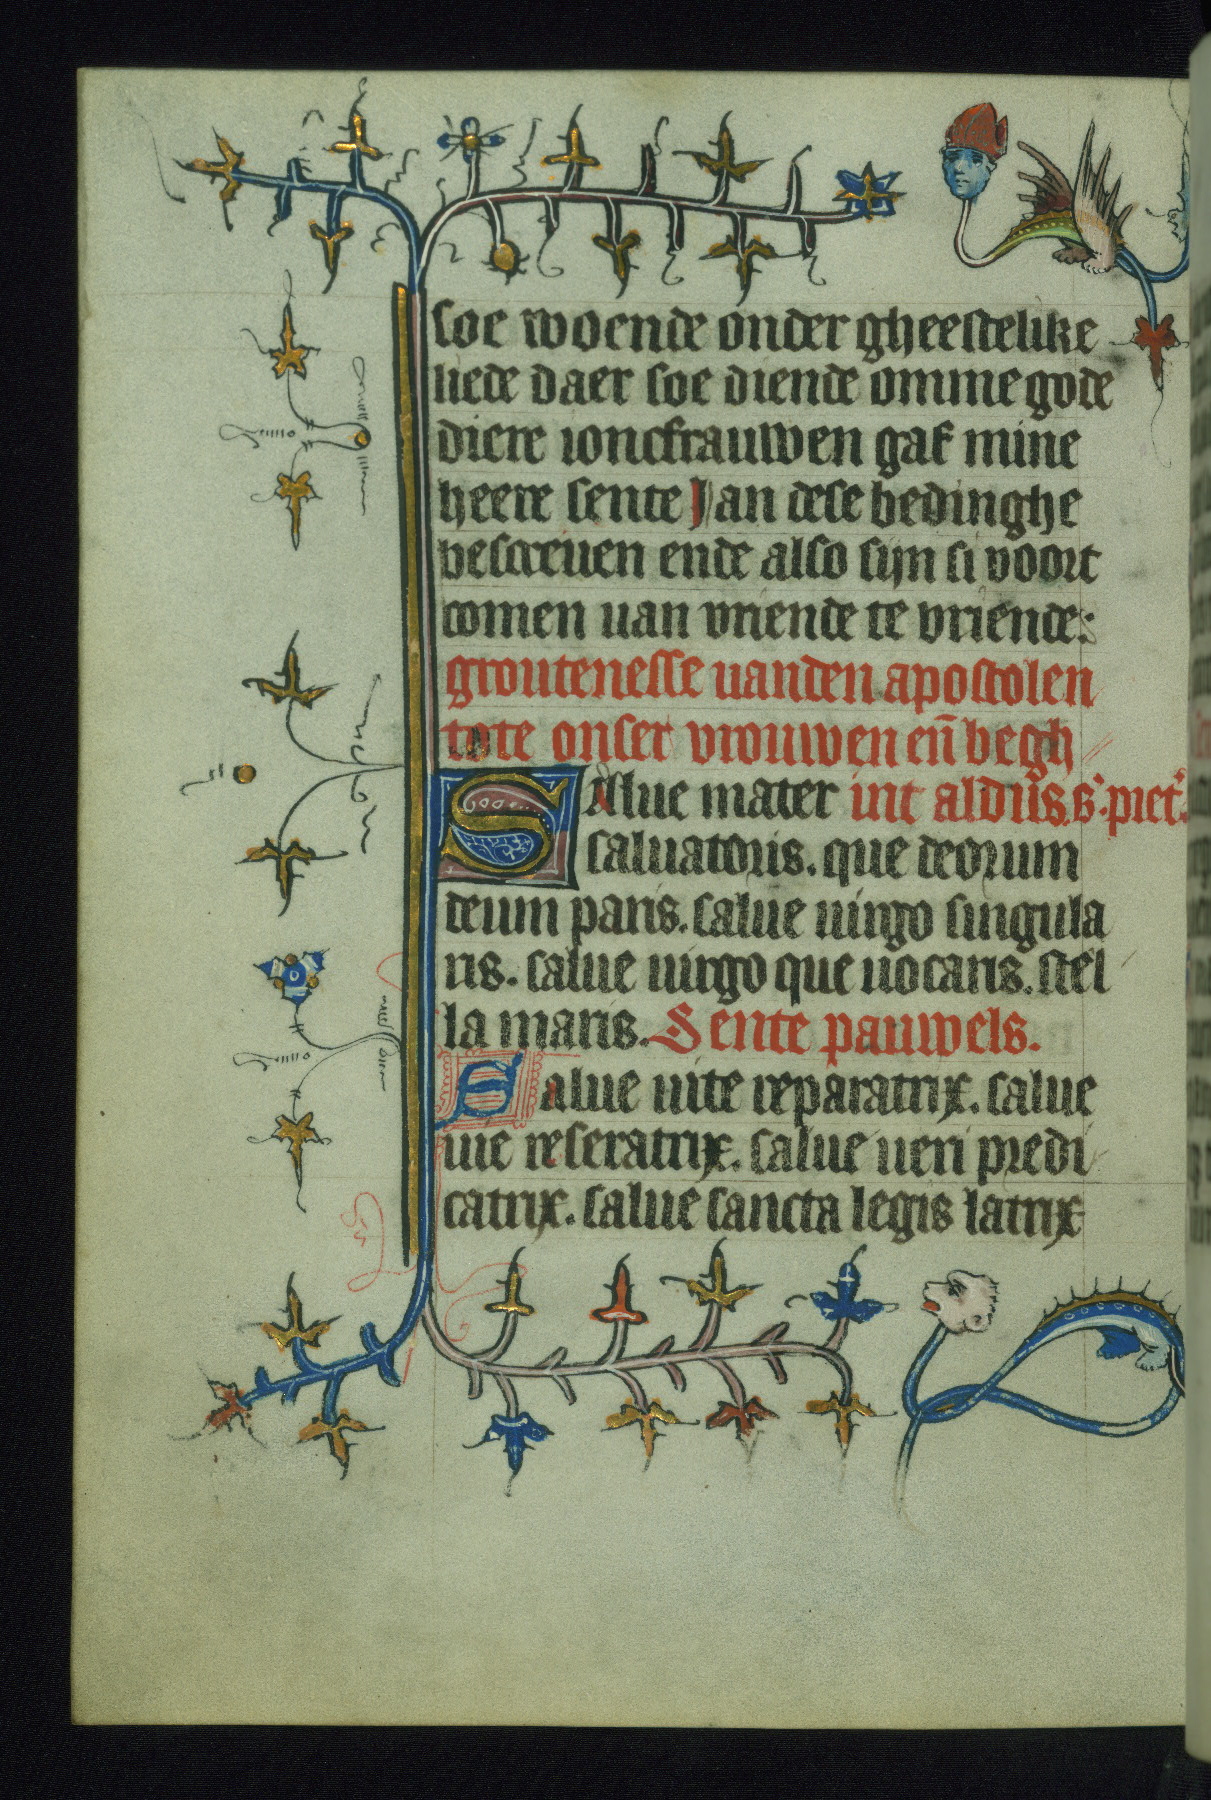 soe woende onder gheestelike
liede daer soe diende omme gode
diere ioncfrauwen gaf mine
heere sente Jan dese bedinghe
bescreuen ende also sijn si voort
comen uan vriende te vriende:
groutenesse uanden apostolen
tote onser vrouwen en̄ begh
Salue mater int aldus. s͛. piet͛.
saluatoris. que deorum
deum paris. salue uirgo singula
ris. salue uirgo que uocaris. stel
la maris. Sente pauwels.
Salue uite reparatrix. salue
uie reseratrix. salue ueri predi
catrix. salue sancta legis latrix